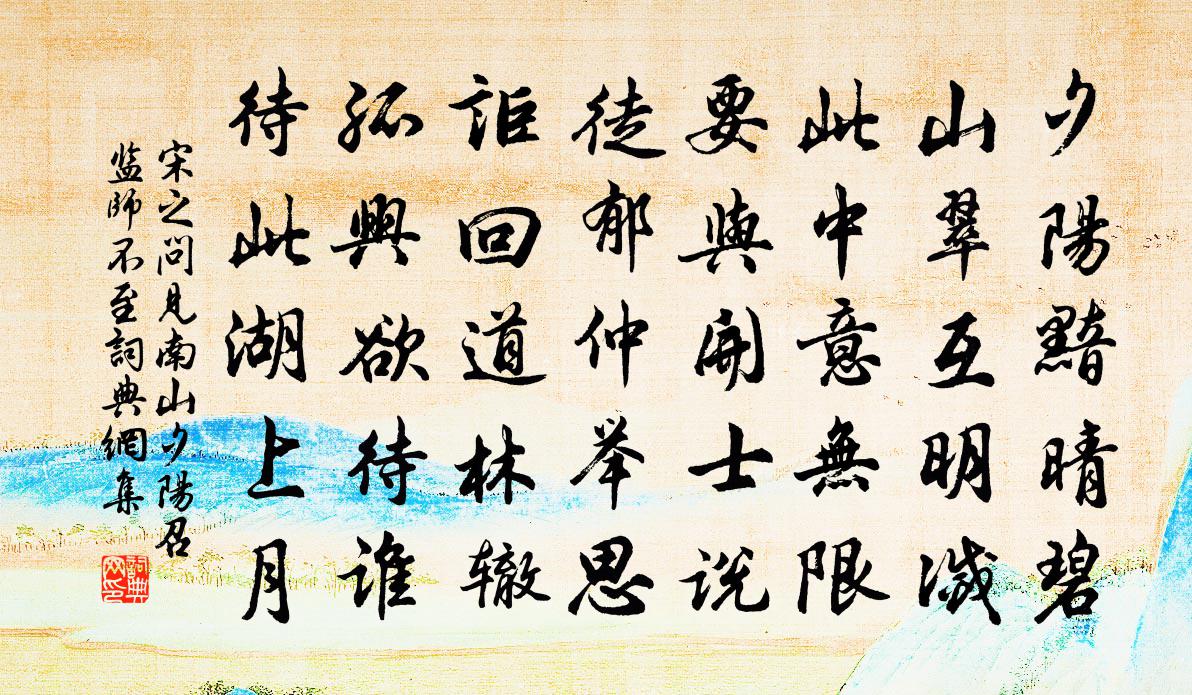 夕陽黯晴碧
山翠互明滅
此中意無限
要與開士说
徒郁仲举思
詎回道林辙
孤興欲待谁
待此湖上月
宋之問見南山夕陽召
监師不至詞典網集
詞典
网印